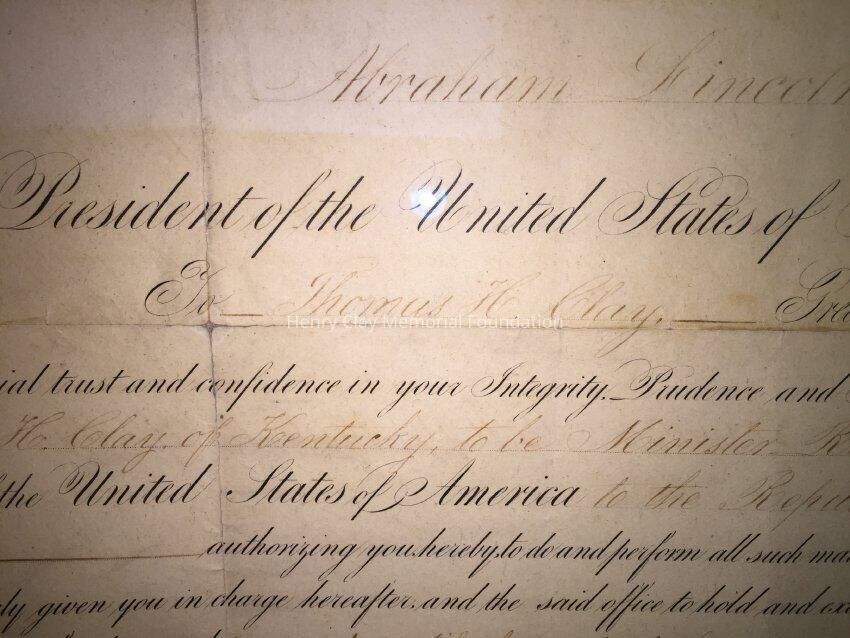 Abraham Lincoln
President of the United States of
To Thomas H. Clay, Gree
Henry Clay Memorial Foundation
ial trust and confidence in your Integrity, Prudence and
H. Clay, of Kentucky, to be Minister R
the United States of America to the Repu
authorizing you hereby to do and perform all such ma
ly given you in charge hereafter, and the said office to hold and ex